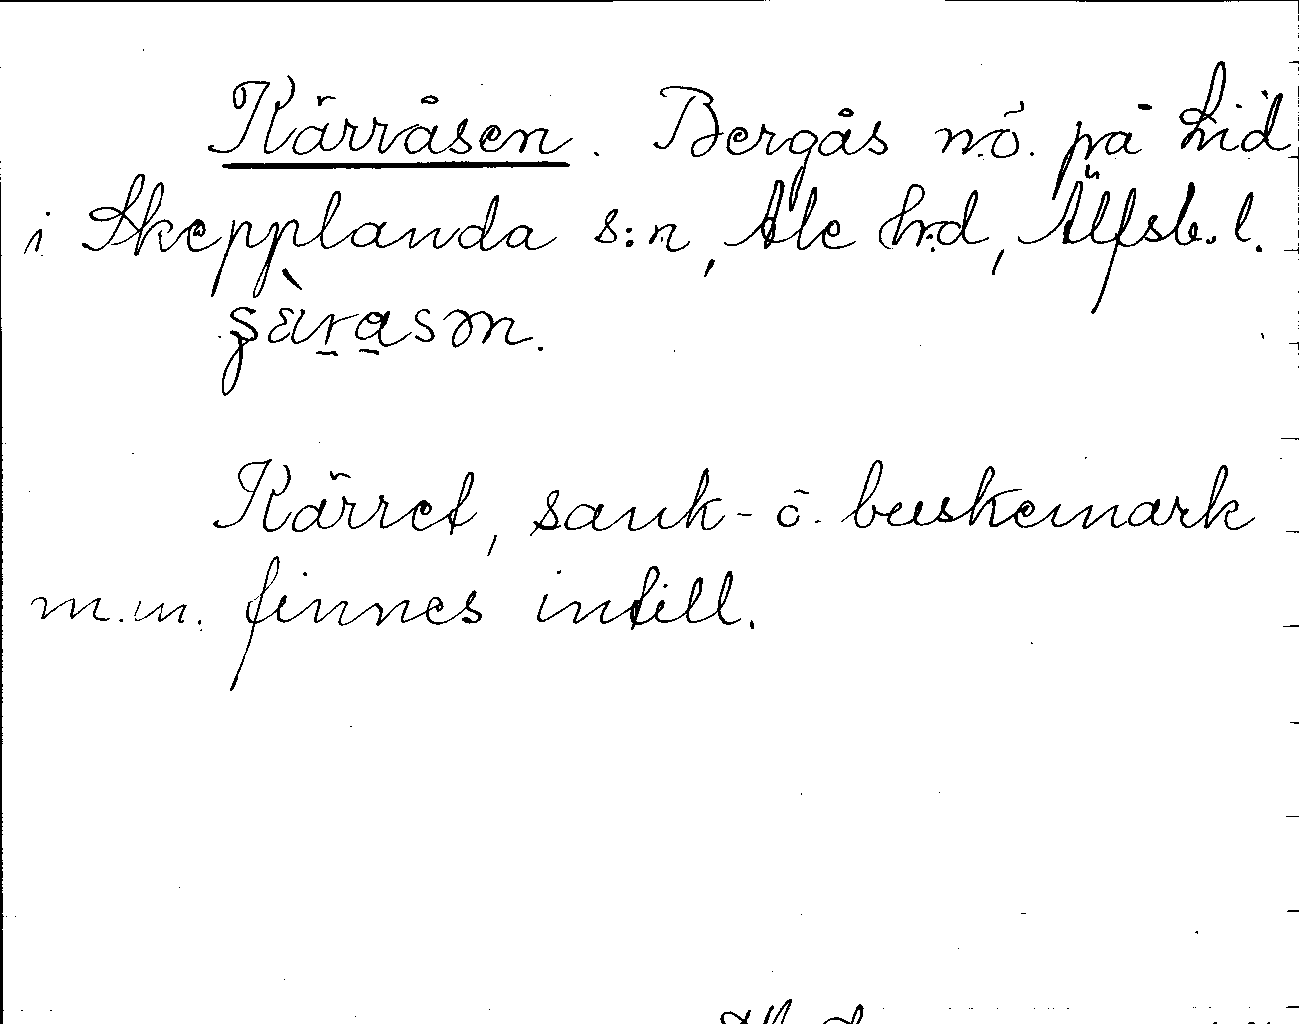 Kärråsen. Bergås nö. på Lid
i Skepplanda s:n, Ale h:d, Älfsb. l.
Kärret, sank- o. buskemark
m.m. finnes intill.